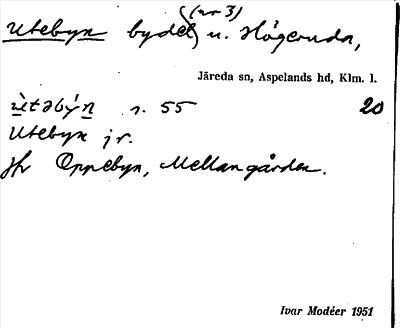 Utebyn bydel (nr 3) u. Högeruda,
Järeda sn, Aspelands hd, Klm. l.
ùtəbýn s. 55 20
Utebyn jr.
Jfr Oppebyn, Mellangården.
Ivar Modéer 1951